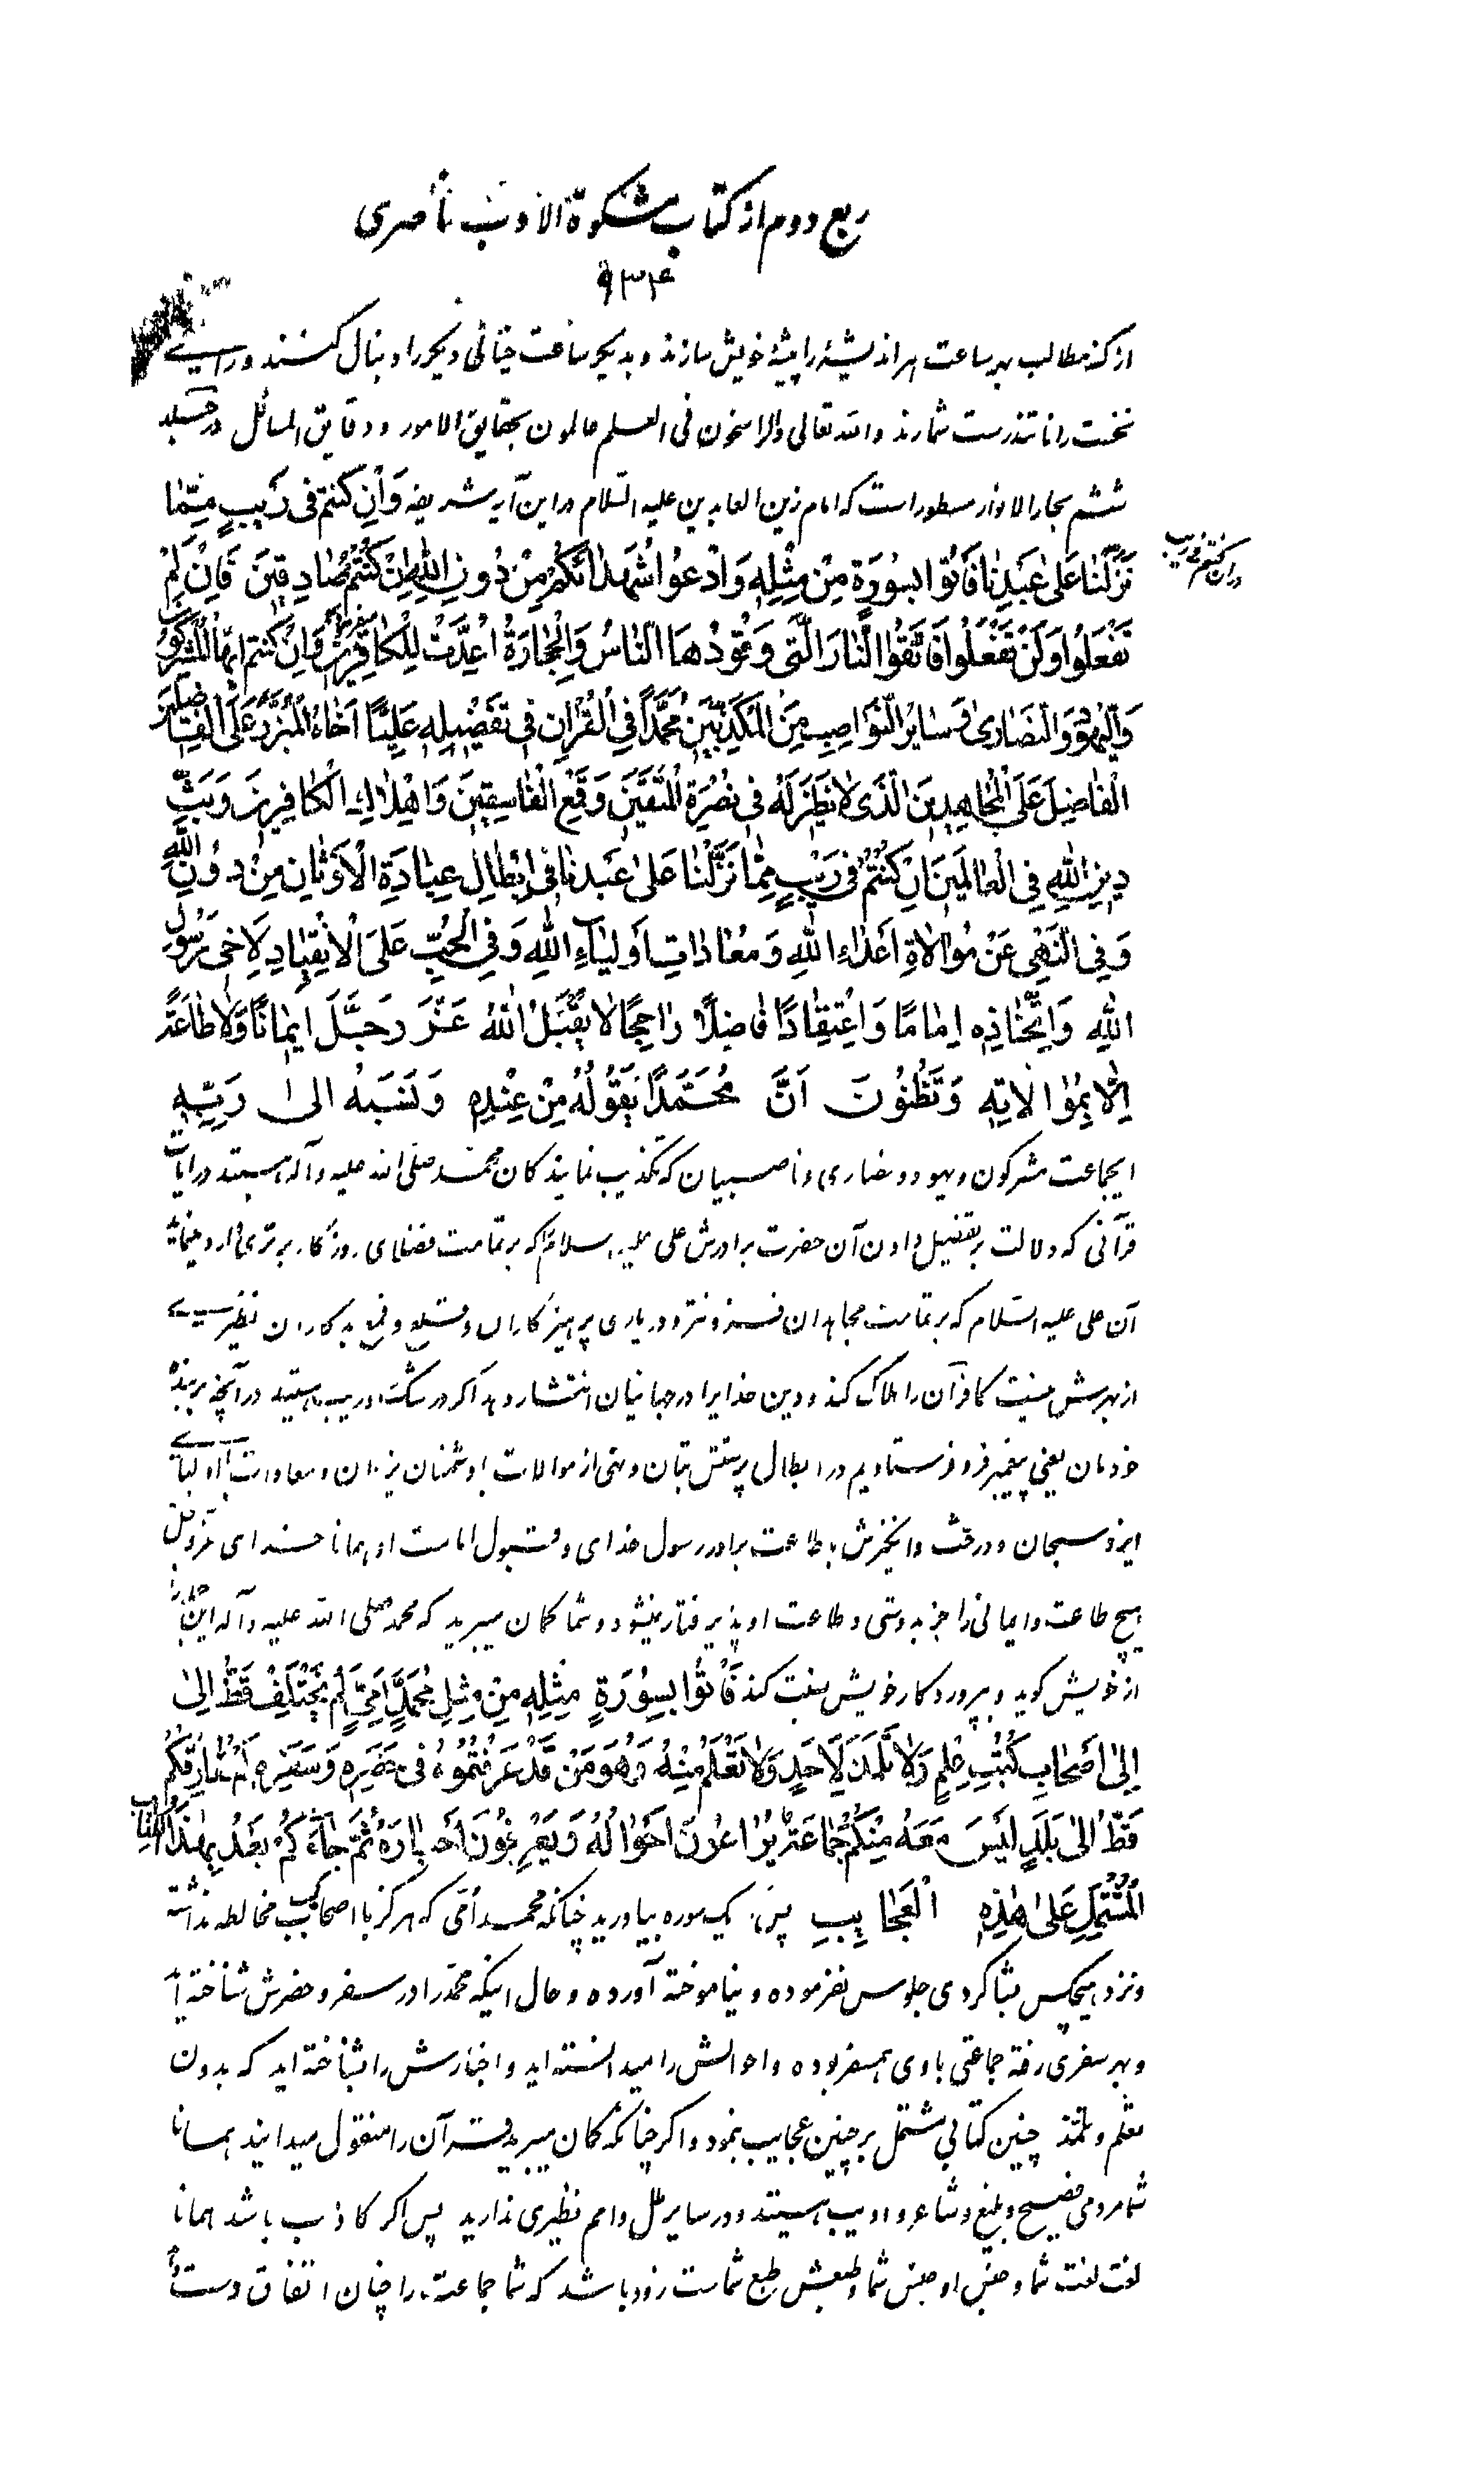 ربع دوم از کتاب مشکوة الادب ناصری
۹۳۴
از کذ مطالب بهر ساعت هر اندیشهٔ را پیشهٔ خویش سازند و بدیگر ساعت خیالی دیگر را دنبال کنند و رای
نخست را نا تندرست شمارند والله تعالی والراسخون فی العلم عالمون بحقایق الامور و دقایق المسائل در جلد
ششم بحار الانوار مسطور است که امام زین العابدین علیه السلام در این آیه شریفه وَاِن کنتم فی رَیبٍ مِمّا
در ان کنتم فی ریب
نَزَّلنا عَلیٰ عَبدِنا فَاتُوا بِسُورَةٍ مِنْ مِثلِهِ وَادْعُوا شُهَداءَکُمْ مِنْ دُونِ اللهِ اِنْ کُنْتُمْ صادِقینَ فَاِنْ لَمْ
تَفْعَلُوا وَلَنْ تَفْعَلُوا فَاتَّقُوا النّارَ الَّتی وَقُودُهَا النّاسُ وَالْحِجارَةُ اُعِدَّتْ لِلْکافِرینَ وَاِنْ کُنْتُم ایُّهَا المُشْرِکُونَ
وَالْیَهُودُ وَالنَّصاریٰ وَسایِرُ النَّواصِبِ مِنَ المُکَذِّبینَ مُحَمَّداً فِی القُرْآنِ فی تَفْضیلِهِ عَلِیًّا اَخاهُ المُبَرَّزَ عَلَی الفاضِلینَ
الْفاضِلَ عَلَی الْمُجاهِدینَ الَّذی لا نَظیرَ لَهُ فی نُصْرَةِ الْمُتَّقینَ وَقَمْعِ الْفاسِقینَ وَاِهْلاکِ الْکافِرینَ وَبَثِّ
دینِ اللهِ فِی الْعالَمینَ اِنْ کُنْتُمْ فی رَیْبٍ مِمّا نَزَّلْنا عَلیٰ عَبْدِنا فی اِبْطالِ عِبادَةِ الْاَوْثانِ مِنْ دُونِ اللهِ
وَفِی النَّهْیِ عَنْ مُوالاةِ اَعْداءِ اللهِ وَمُعاداتِ اَولیاءِ اللهِ وَفِی الْحَثِّ عَلَی الْاِنْقِیادِ لِاَخی رَسُولِ
اللهِ وَاتِّخاذِهِ اِماماً وَاعْتِقادِاً فاضِلاً راجِحاً لا یَقْبَلُ اللهُ عَزَّ وَجَلَّ ایماناً وَلا طاعَةً
اِلّا بِمُوالاتِهِ وَتَظُنُّونَ اَنَّ مُحَمَّداً یَقُولُهُ مِنْ عِنْدِهِ وَنَسَبَهُ الیٰ رَبِّهِ
ایجماعت مشرکون و یهود و نصاری و ناصبیان که تکذیب نمایندکان محمد صلی الله علیه و آله هستند در آیات
قرآنی که دلالت بر تفضیل دادن آن حضرت برادرش علی علیه السلام را که بر تمامت فضلای روزکار برتری دارد
آن علی علیه السلام که بر تمامت مجاهدان فزونتر و در یاری پرهیزکاران و قلع و قمع بدکاران نظیری
از بهرش نیست کافران را هلاک کند و دین خدایرا در جهانیان انتشار دهد اکر در شک و ریب هستید در آنچه بر بنده
خودمان یعنی پیغمبر فرو فرستادیم در ابطال پرستش بتان و نهی از موالات با دشمنان یزدان و معادات با اولیای
ایزد سبحان و در حث و انکیزش بطاعت برادر رسول خدای و قبول امامت او همانا خدای عزوجل
هیچ طاعت و ایمانی را جز بدوستی و طاعت او پذیرفتار نمیشود و شما کمان میبرید که محمد صلی الله علیه و آله این
از خویش کوید و بپروردکار خویش نسبت کند فَأتُوا بِسُورَةٍ مِثْلِهِ مِنْ مِثلِ مُحَمَّدٍ اُمِّیٍّ لَمْ یَخْتَلِفْ قَطُّ اِلیٰ
اِلیٰ اَصْحابِ کُتُبِ عِلْمٍ وَلا تَلْمَذَ لِاَحَدٍ وَلا تَعَلَّمَ مِنْهُ وَهُوَ مَنْ قَدْ عَرَفْتُمُوهُ فی حَضَرِهِ وَسَفَرِهِ لَمْ یُفارِقْکُمْ
قَطُّ الیٰ بَلَدٍ لَیْسَ مَعَهُ مِنْکُمْ جَماعَةٌ یُراعُونَ اَحْوالَهُ وَیَعْرِفُونَ اَخْبارَهُ ثُمَّ جاءَکُمْ بَعْدُ بِهذَا الکِتابِ
الْمُشْتَمِلِ عَلیٰ هٰذِهِ الْعَجایِبِ پس یک سوره بیاورید چنانکه محمد امّی که هرکز با اصحاب کتب مخالطه نداشته
و نزد هیچکس بشاکردی جلوس نفرموده و نیاموخته آورده و حال اینکه محمد را در سفر و حضرش شناخته اید
و بهر سفری رفته جماعتی با وی همسفر بوده و احوالش را میدانسته اید و اخبارش را بشناخته اید که بدون
معلم و تلمذ چنین کتابی مشتمل بر چنین عجایب بنمود و اکر چنانکه کمان میبرید قرآن را منقول میدانید همانا
شما مردمی فصیح و بلیغ و شاعر و ادیب هستید و در سایر ملل و امم نظیری ندارید پس اکر کاذب باشد همانا
لغت لغت شما و جنس او جنس شما و طبعش طبع شماست زود باشد که شما جماعت را چنان اتفاق